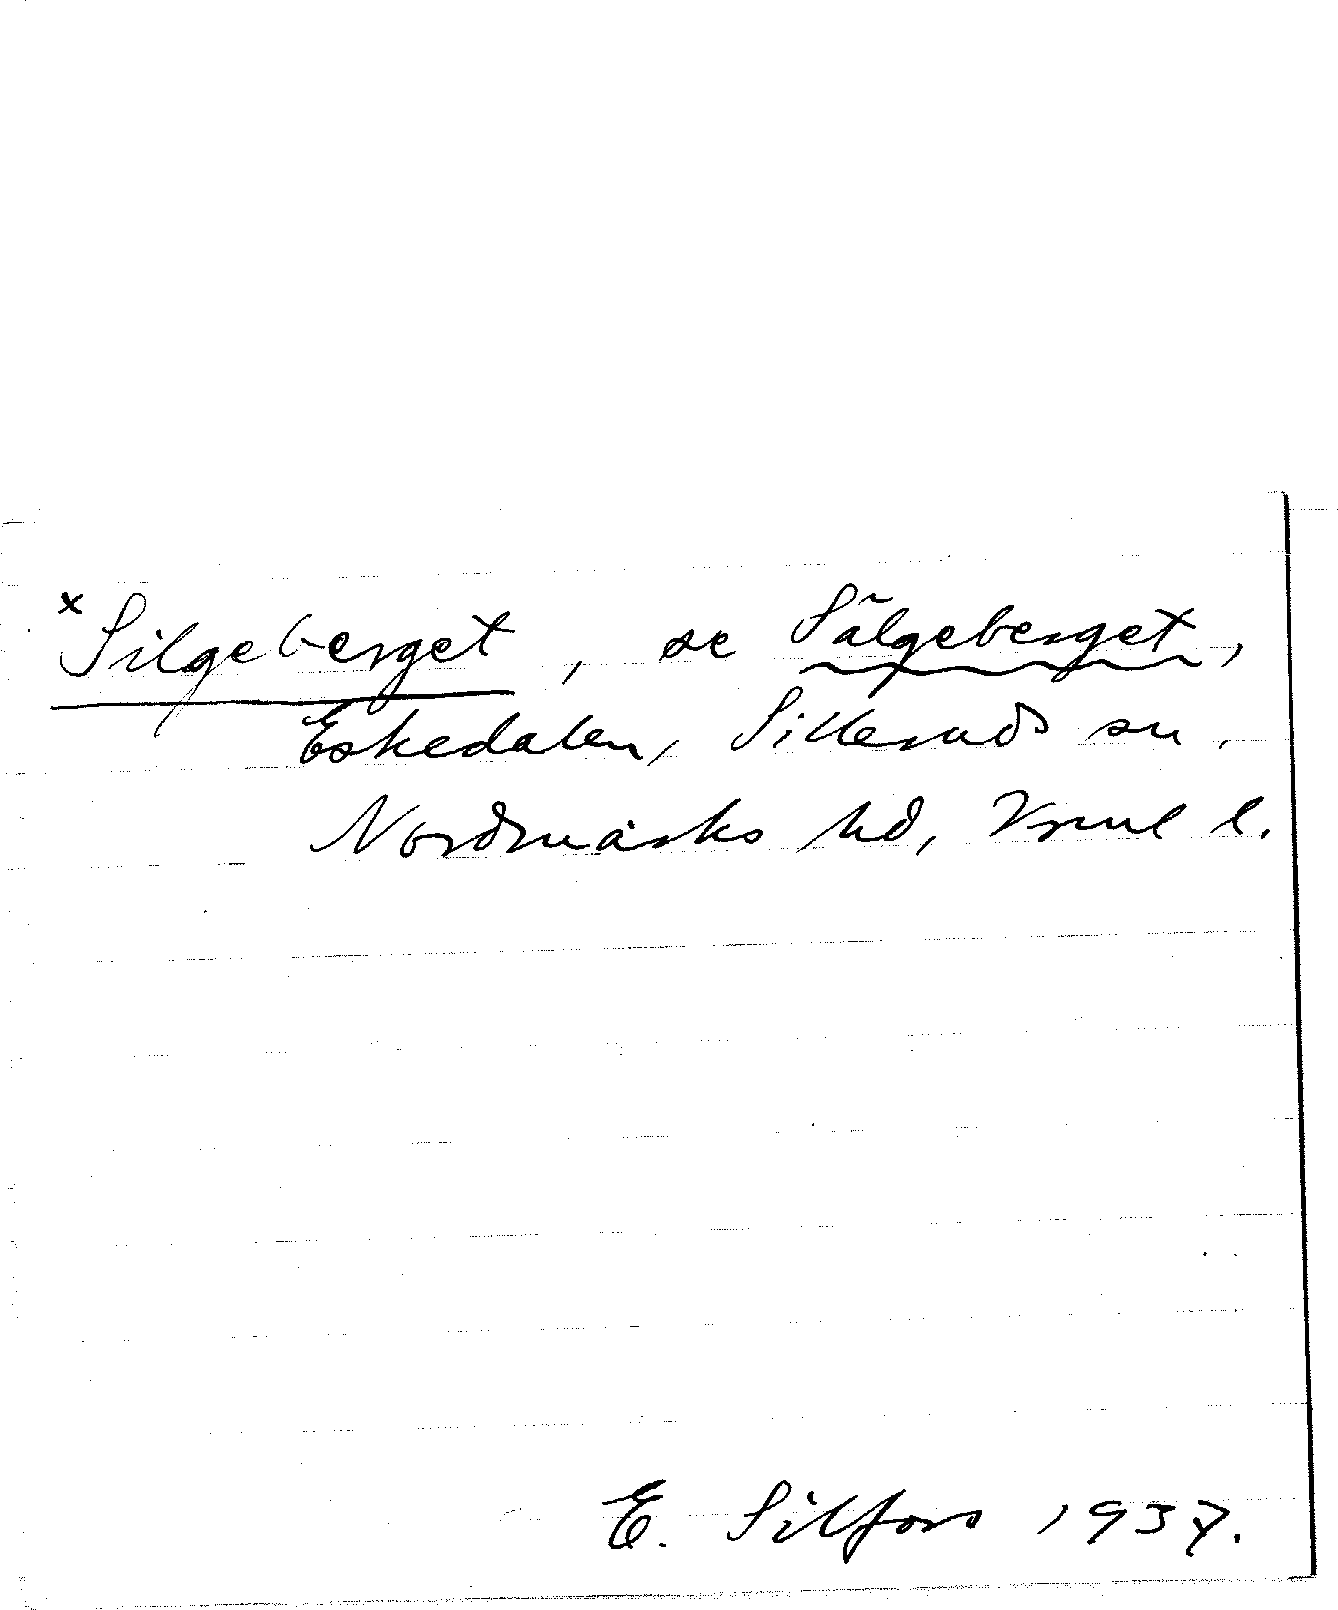 × Silgeberget, se Sälgeberget,
Eskedalen, Silleruds sn.
Nordmarks hd, Vrml l.
E. Silfors 1937.